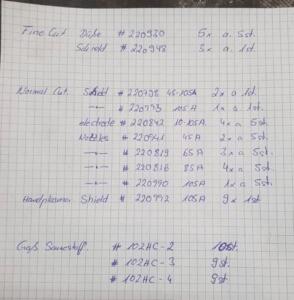 Fine Cut. Düße # 220930 5x a. 5st.
Schield # 220948 3x a. 1st.
Normal Cut. Shield # 220798 45-105A 2x a 1st.
—"— # 220993 105A 1x a 1st.
electrode # 220842 10-105A 4x a 5st.
Nozzles # 220941 45A 2x a 5st.
—"— # 220819 65A 3x a 5st.
—"— # 220816 85A 4x a 5st.
—"— # 220990 105A 1x a 5st.
Handplasma Shield # 220992 105A 9x 1st
Gas Sauerstoff. # 102HC-2 10st.
# 102HC-3 9st.
# 102HC-4 9st.